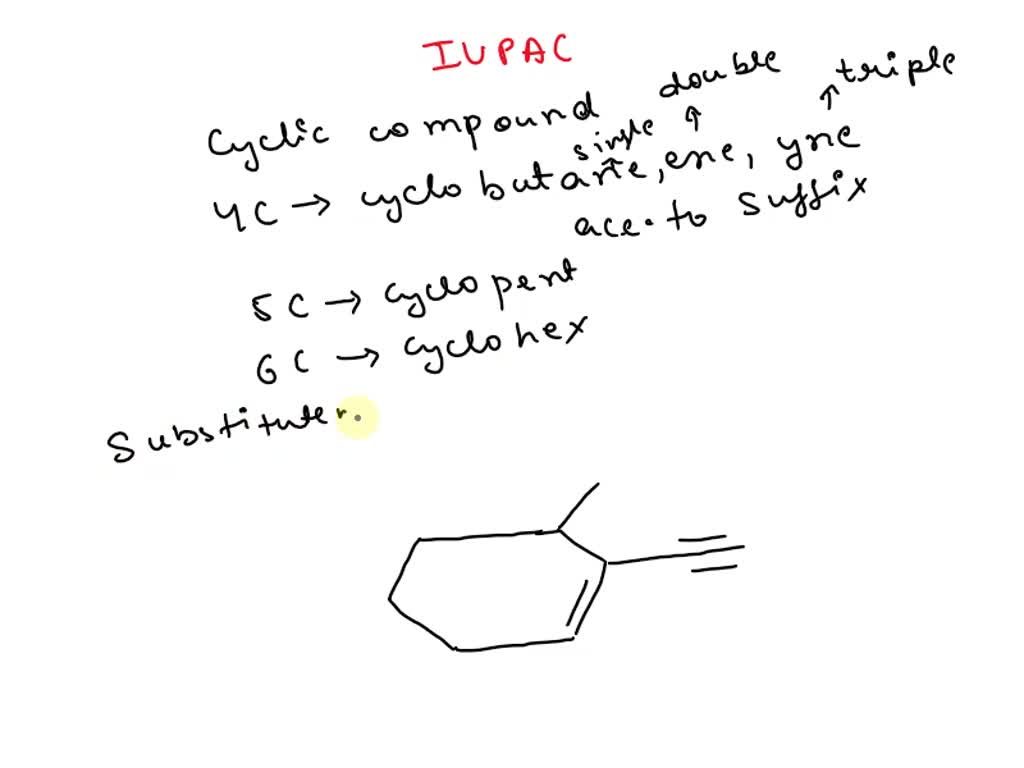 IUPAC
double triple
Cyclic compound
single
4C → cyclobutane, ene, yne
acc. to suffix
5C → cyclopent
6C → cyclohex
Substituter.